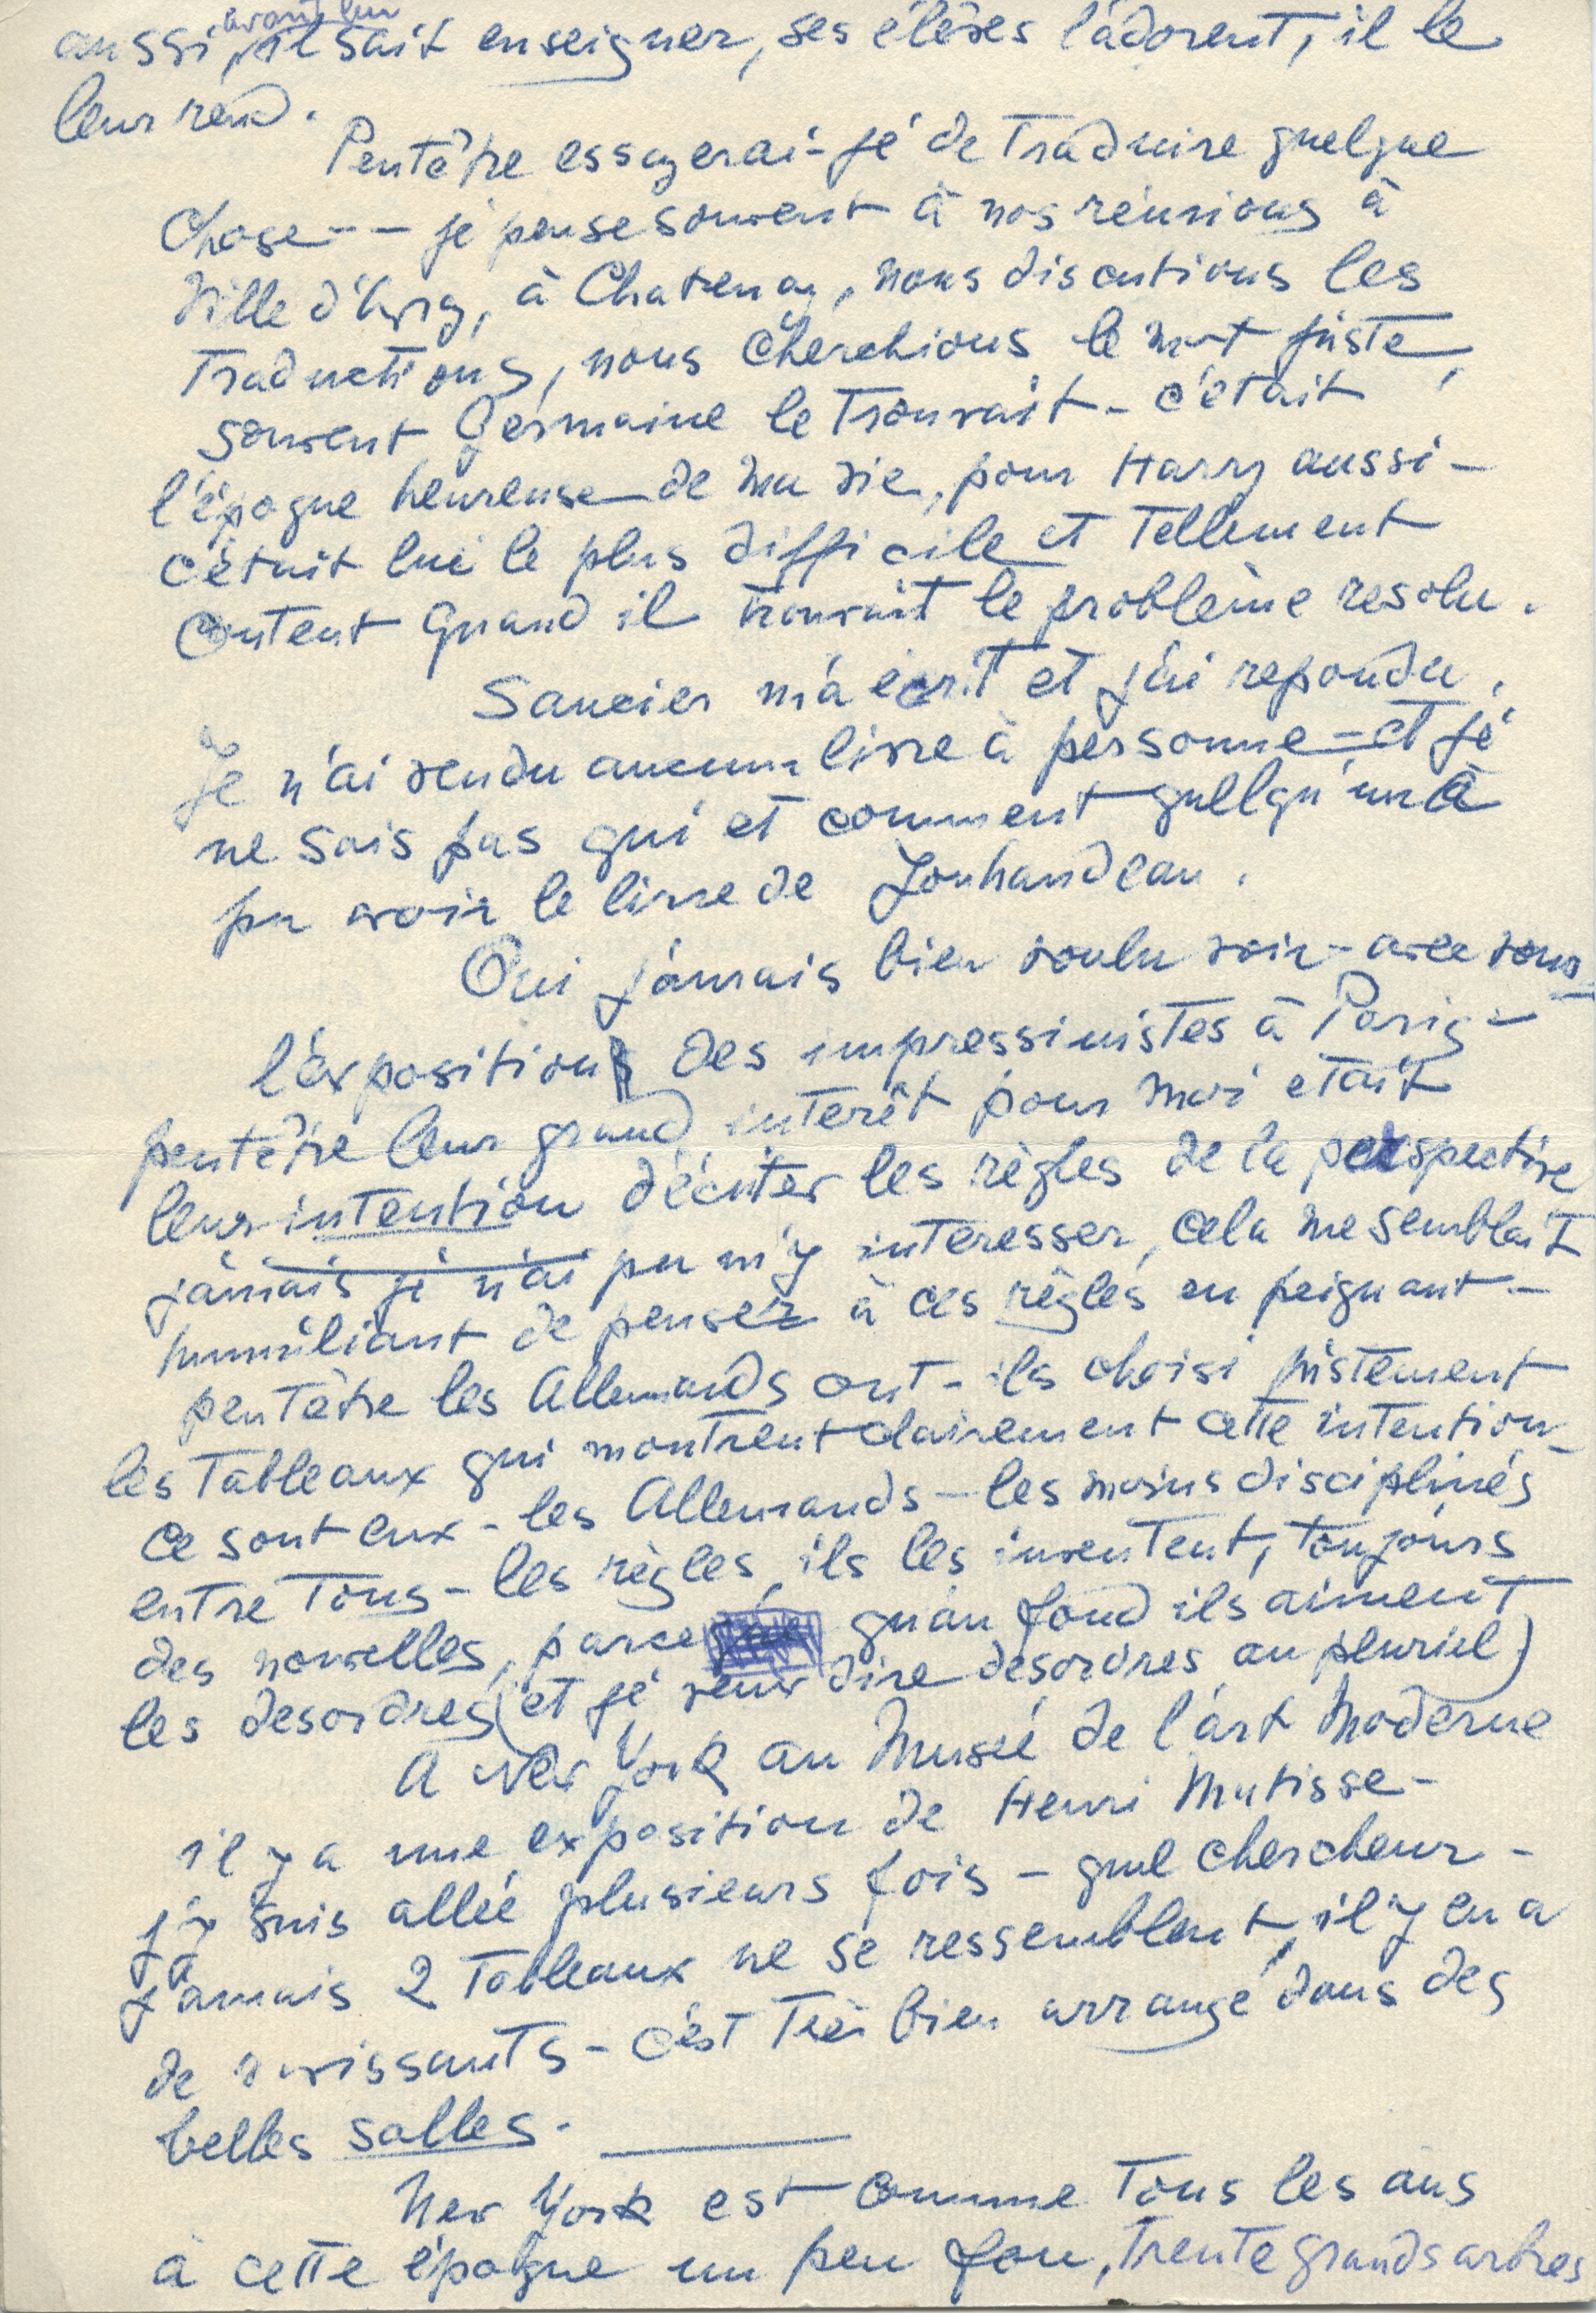 aussi, il sait enseigner, ses élèves l'adorent, il le
leur rend.
Peutêtre essayerai-je de traduire quelque
chose -- je pense souvent à nos réunions à
Ville d'Avray, à Chatenay, nous discutions les
traductions, nous cherchions le mot juste,
souvent Germaine le trouvait - c'était
l'époque heureuse de ma vie, pour Harry aussi -
c'était lui le plus difficile et tellement
content quand il trouvait le problème resolu.
Saucier m'a écrit et j'ai repondu.
Je n'ai vendu aucun livre à personne - et je
ne sais pas qui et comment quelqu'un a
pu avoir le livre de Jouhandeau.
Oui j'aurais bien voulu voir - avec vous
l'exposition des impressinistes à Paris -
peutêtre leur grand interêt pour moi etait
leur intention d'éviter les règles de la perspective
jamais je n'ai pu m'y interesser, cela me semblait
humiliant de penser à ces règles en peignant -
peutêtre les Allemands ont-ils choisi justement
les tableaux qui montrent clairement cette intention -
ce sont eux - les Allemands - les moins disciplinés
entre tous - les règles, ils les inventent, toujours
des nouvelles, parce qu'au fond ils aiment
les desordres (et je veux dire desordres au pluriel)
A New York au Musée de l'art moderne
il y a une exposition de Henri Matisse -
j'y suis allée plusieurs fois - quel chercheur -
jamais 2 tableaux ne se ressemblent, il y en a
de ravissants - c'est très bien arrangé dans des
belles salles.
New York est comme tous les ans
à cette époque un peu fou, trente grands arbres